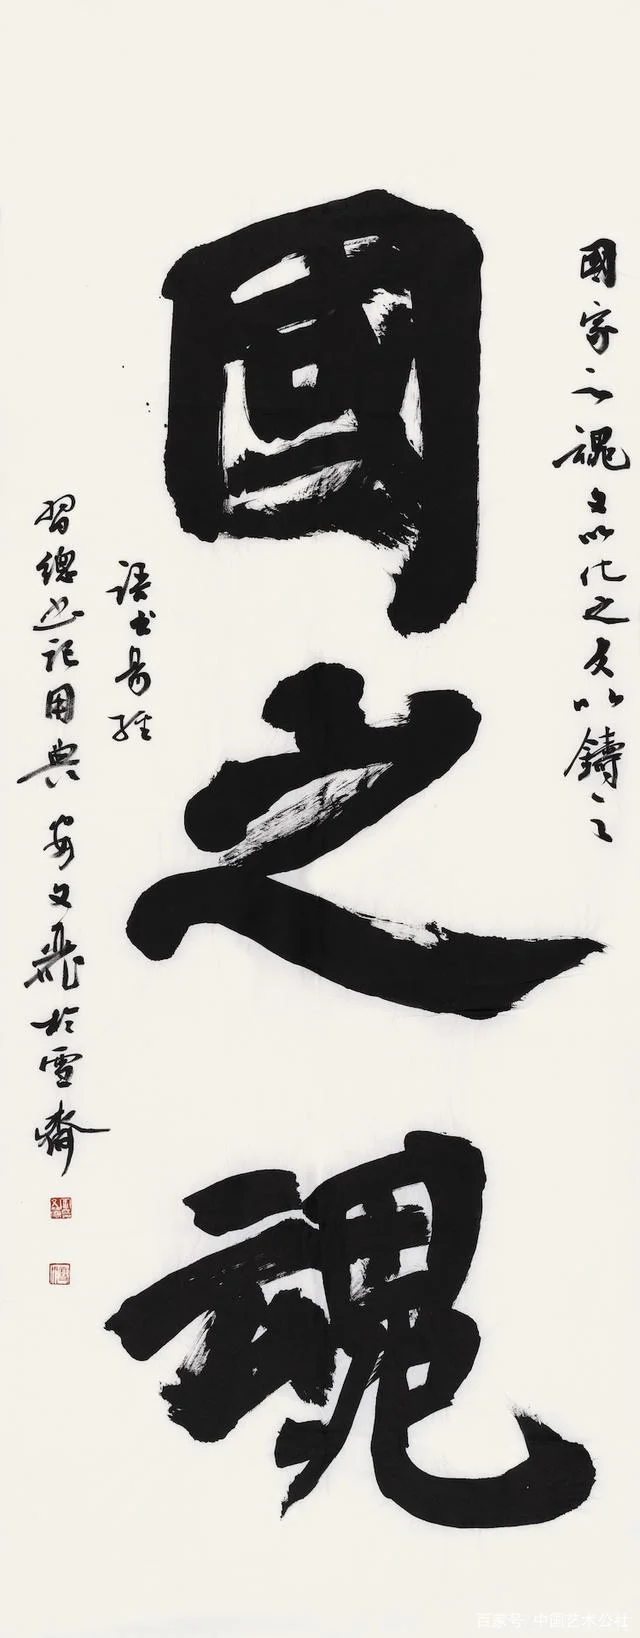 國之魂
國家之魂文以化之文以鑄之
語出易經
習總書記用典 安文飛於雪齋
百家号·中国艺术公社